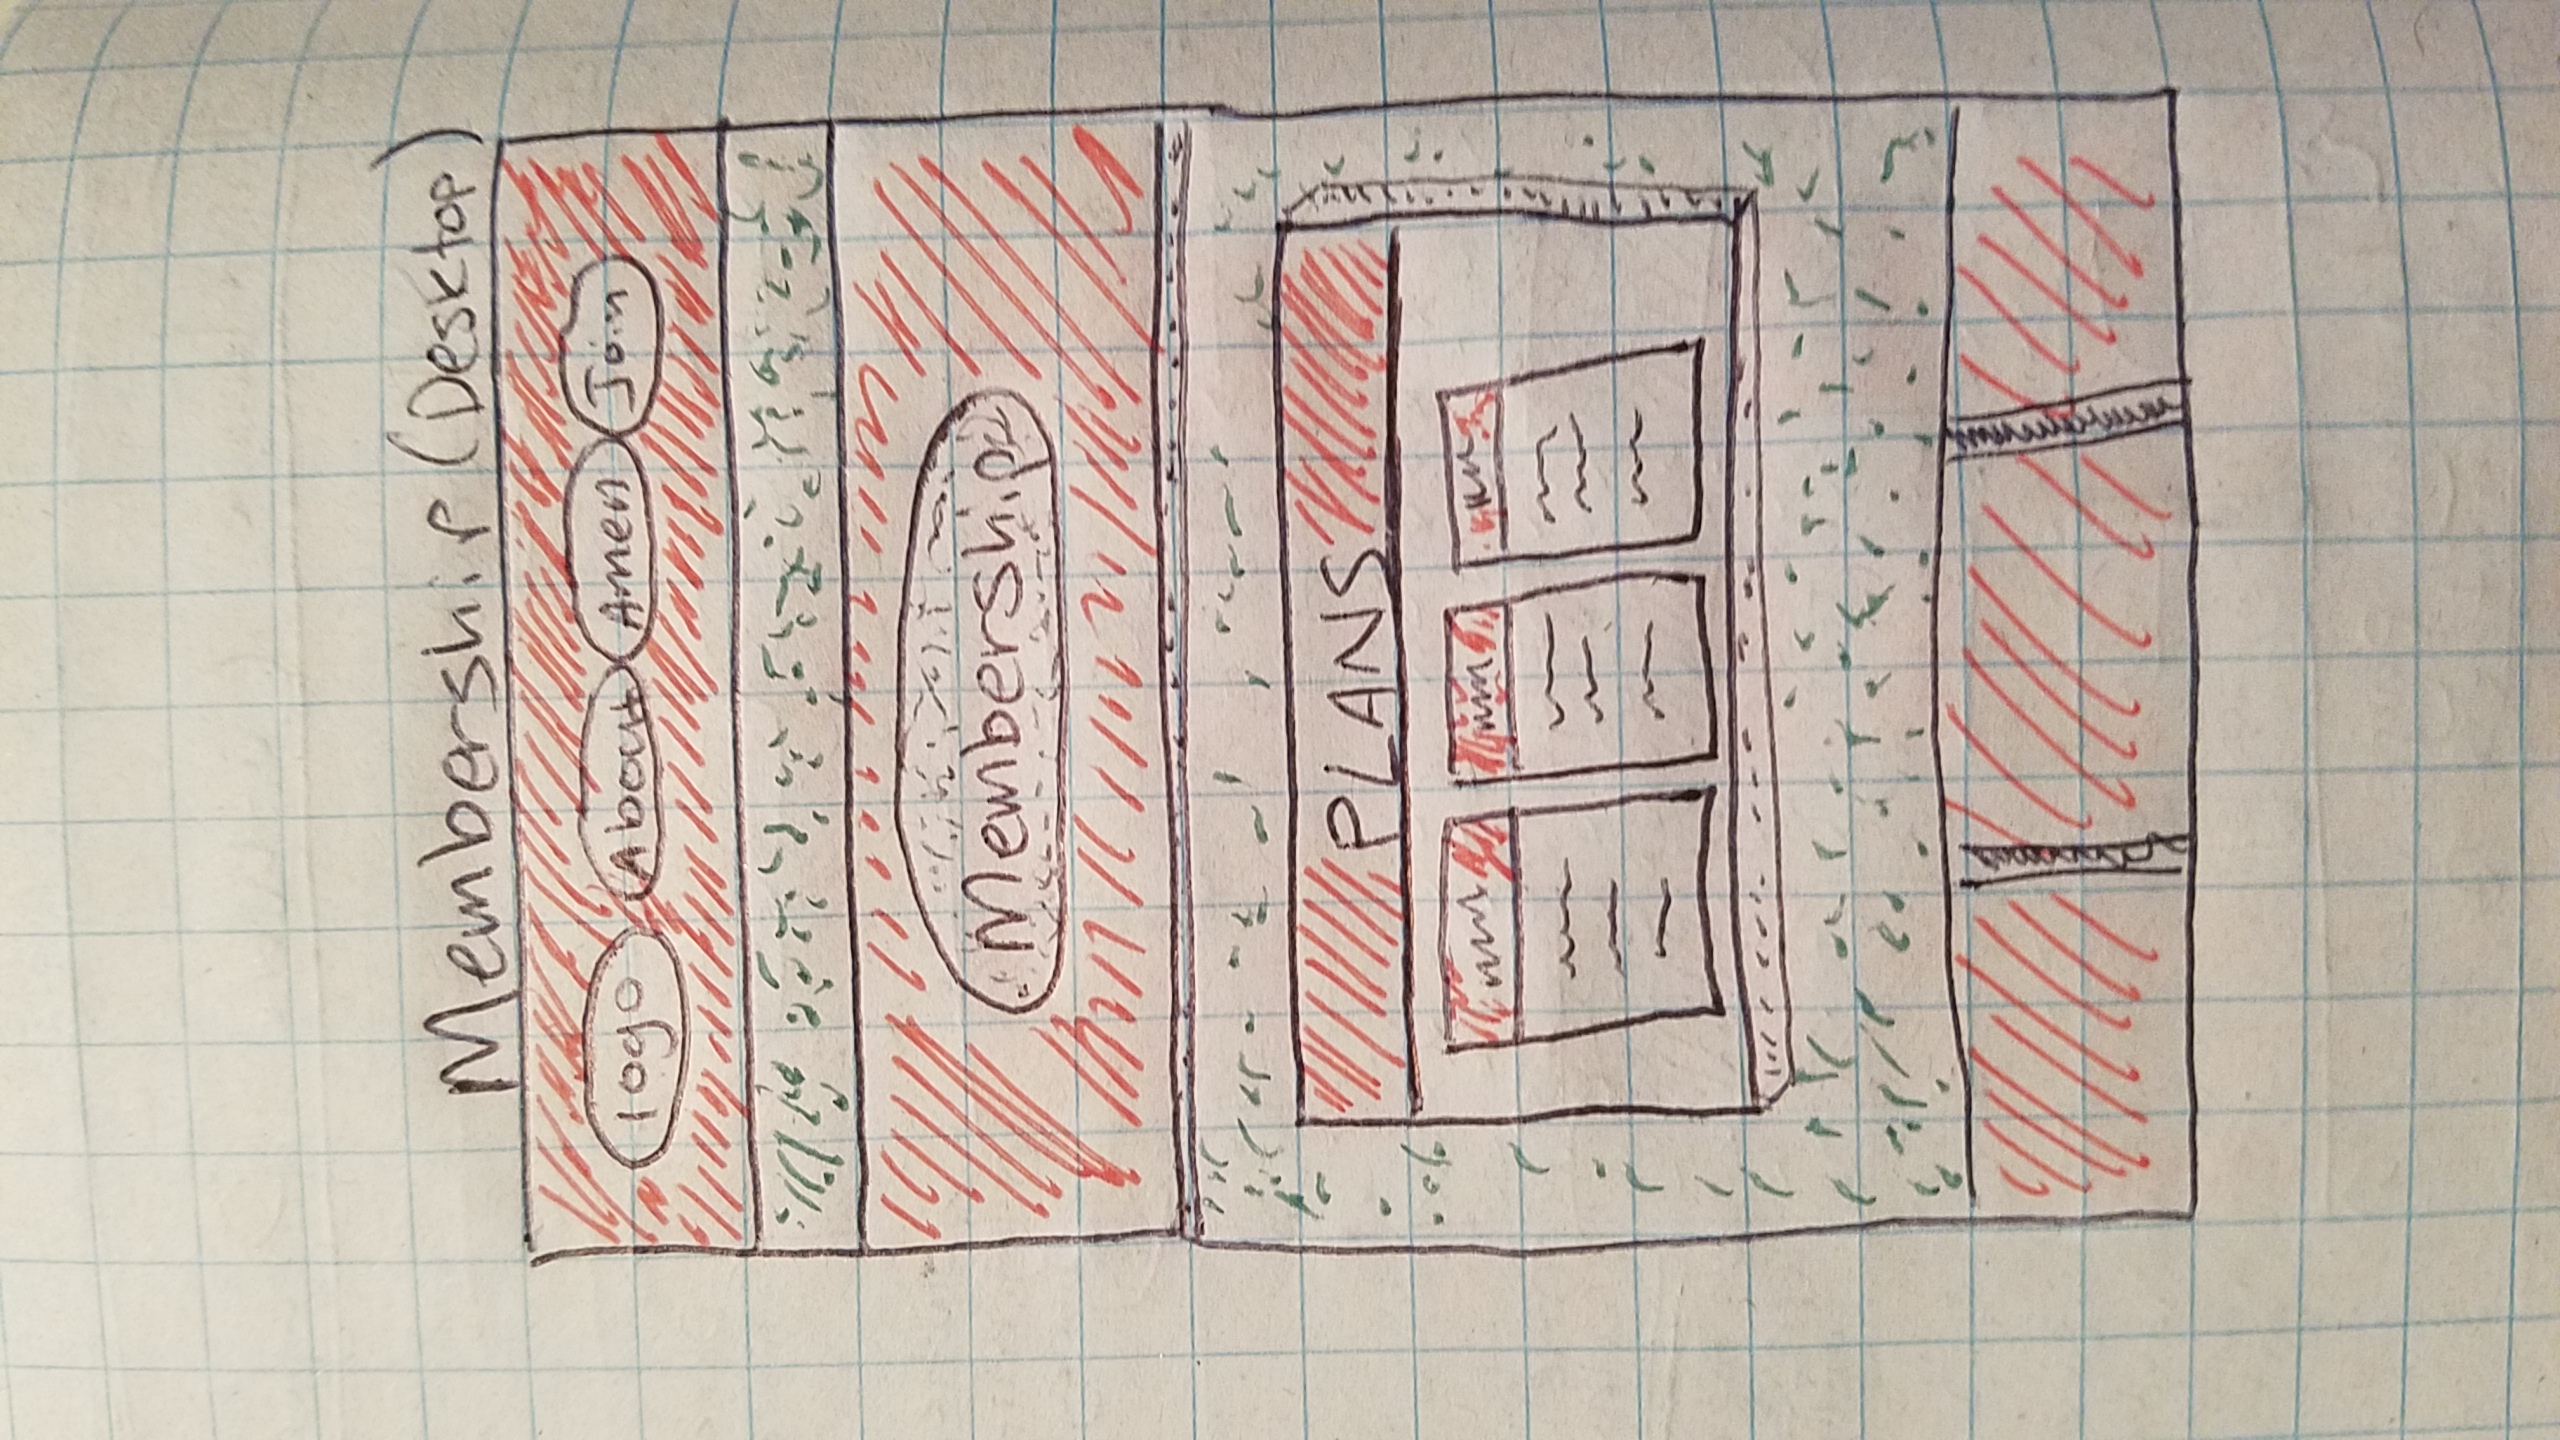 Membership (Desktop)
logo About Amen Join
Membership
PLANS